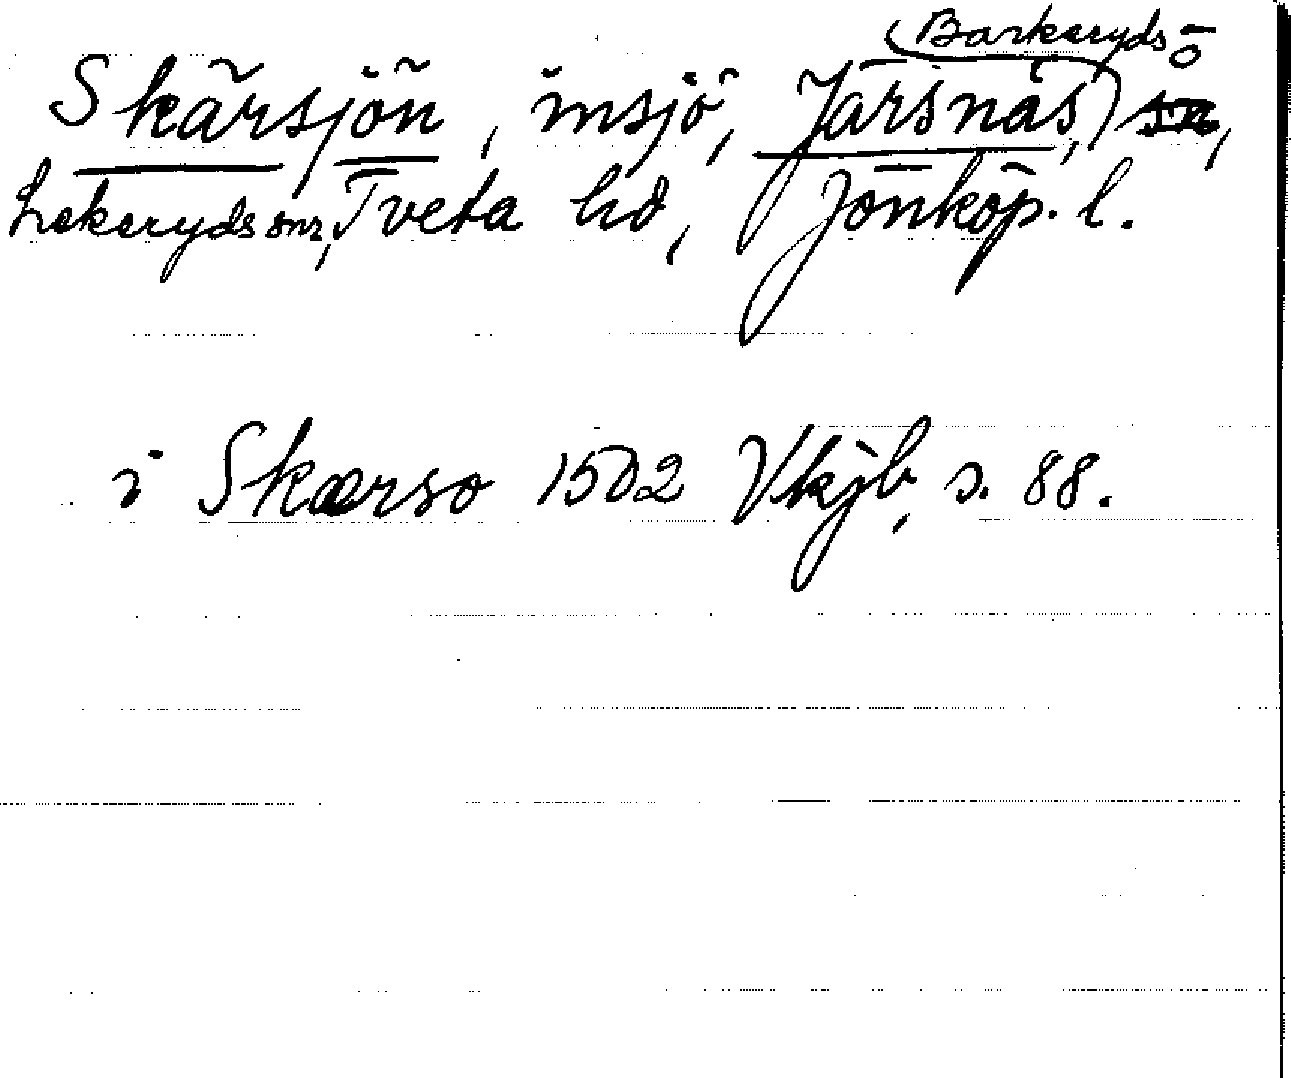 Barkeryds- o
Skärsjön, insjö, Järsnäs, sn,
Lekeryds snr, Tveta hd, Jönköp. l.
i Skærso 1502 Vkjb, s. 88.